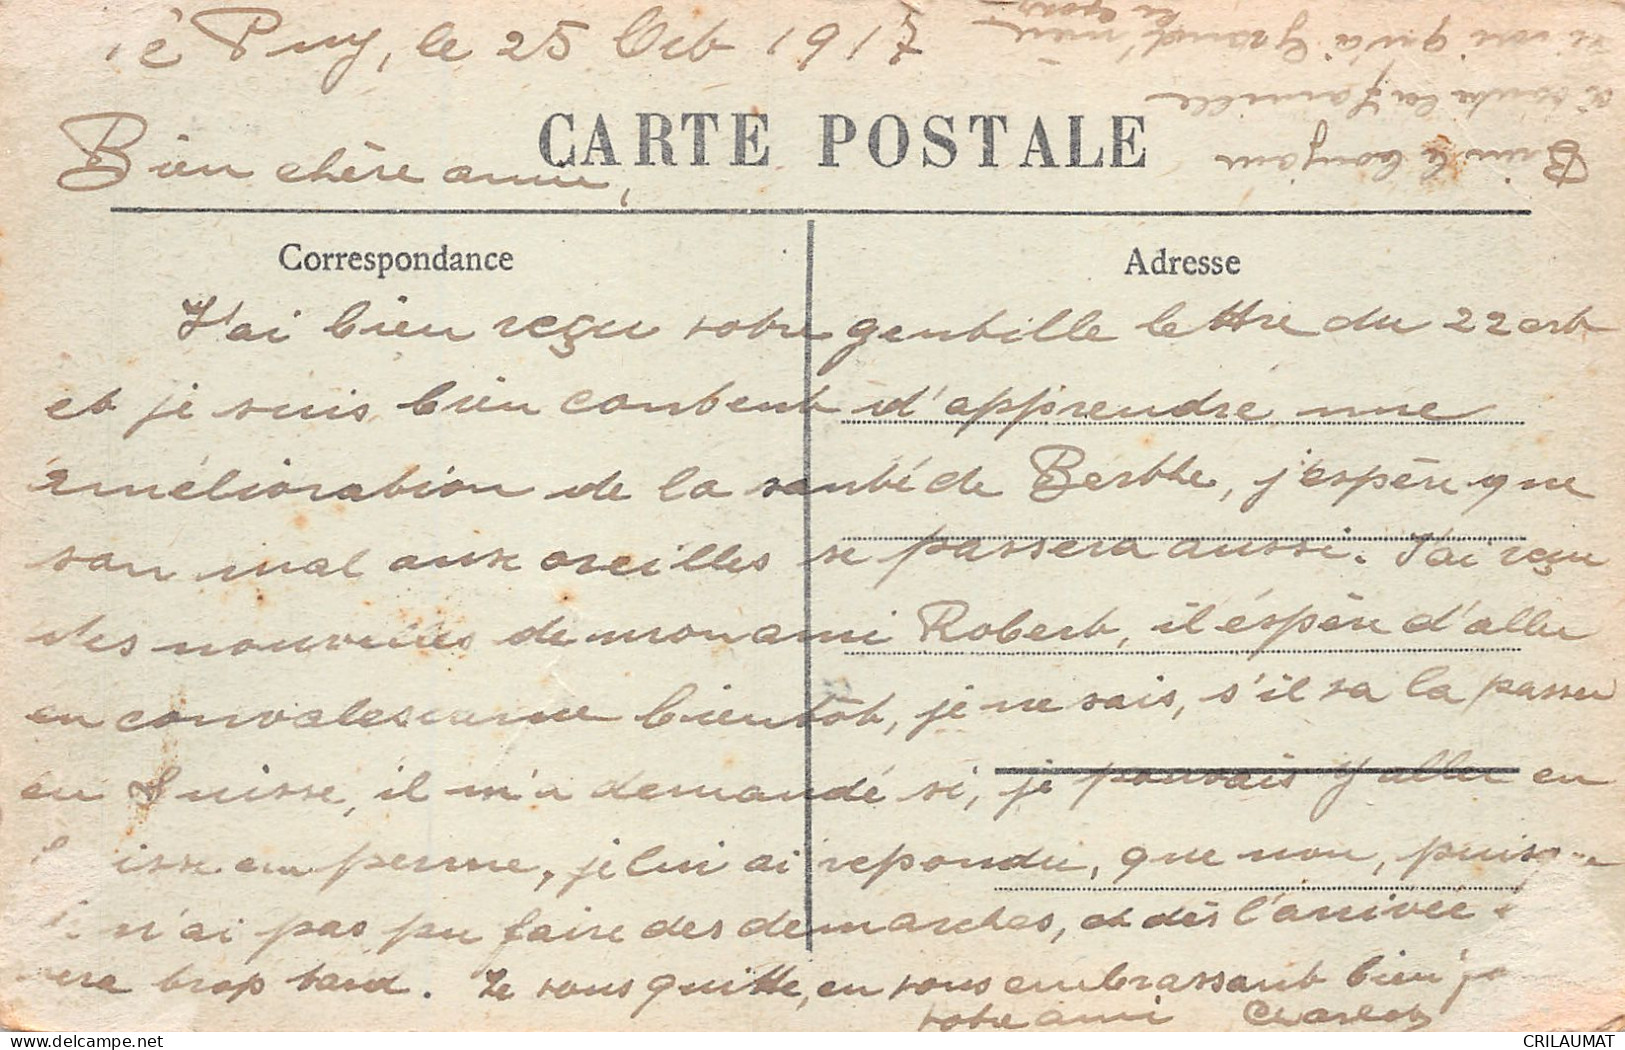 Le Puy, le 25 Oct 1917
CARTE POSTALE
Bien chère amie,
Correspondance
Adresse
J'ai bien reçu votre gentille lettre du 22 crt
et je suis bien content d'apprendre une
amélioration de la santé de Berthe, j'espère que
son mal aux oreilles se passera aussi. J'ai reçu
des nouvelles de mon ami Robert, il éspère d'aller
en convalescence bientôt, je ne sais, s'il va la passer
en Suisse, il m'a demandé si, je pouvais y aller en
Suisse en perme, je lui ai repondu, que non, puisque
je n'ai pas pu faire des demarches, et dès l'arrivée
sera trop tard. Je vous quitte, en vous embrassant bien
votre ami Charles
Bien le bonjour
à toute la famille
qu'à Grand'mère
CRILAUMAT